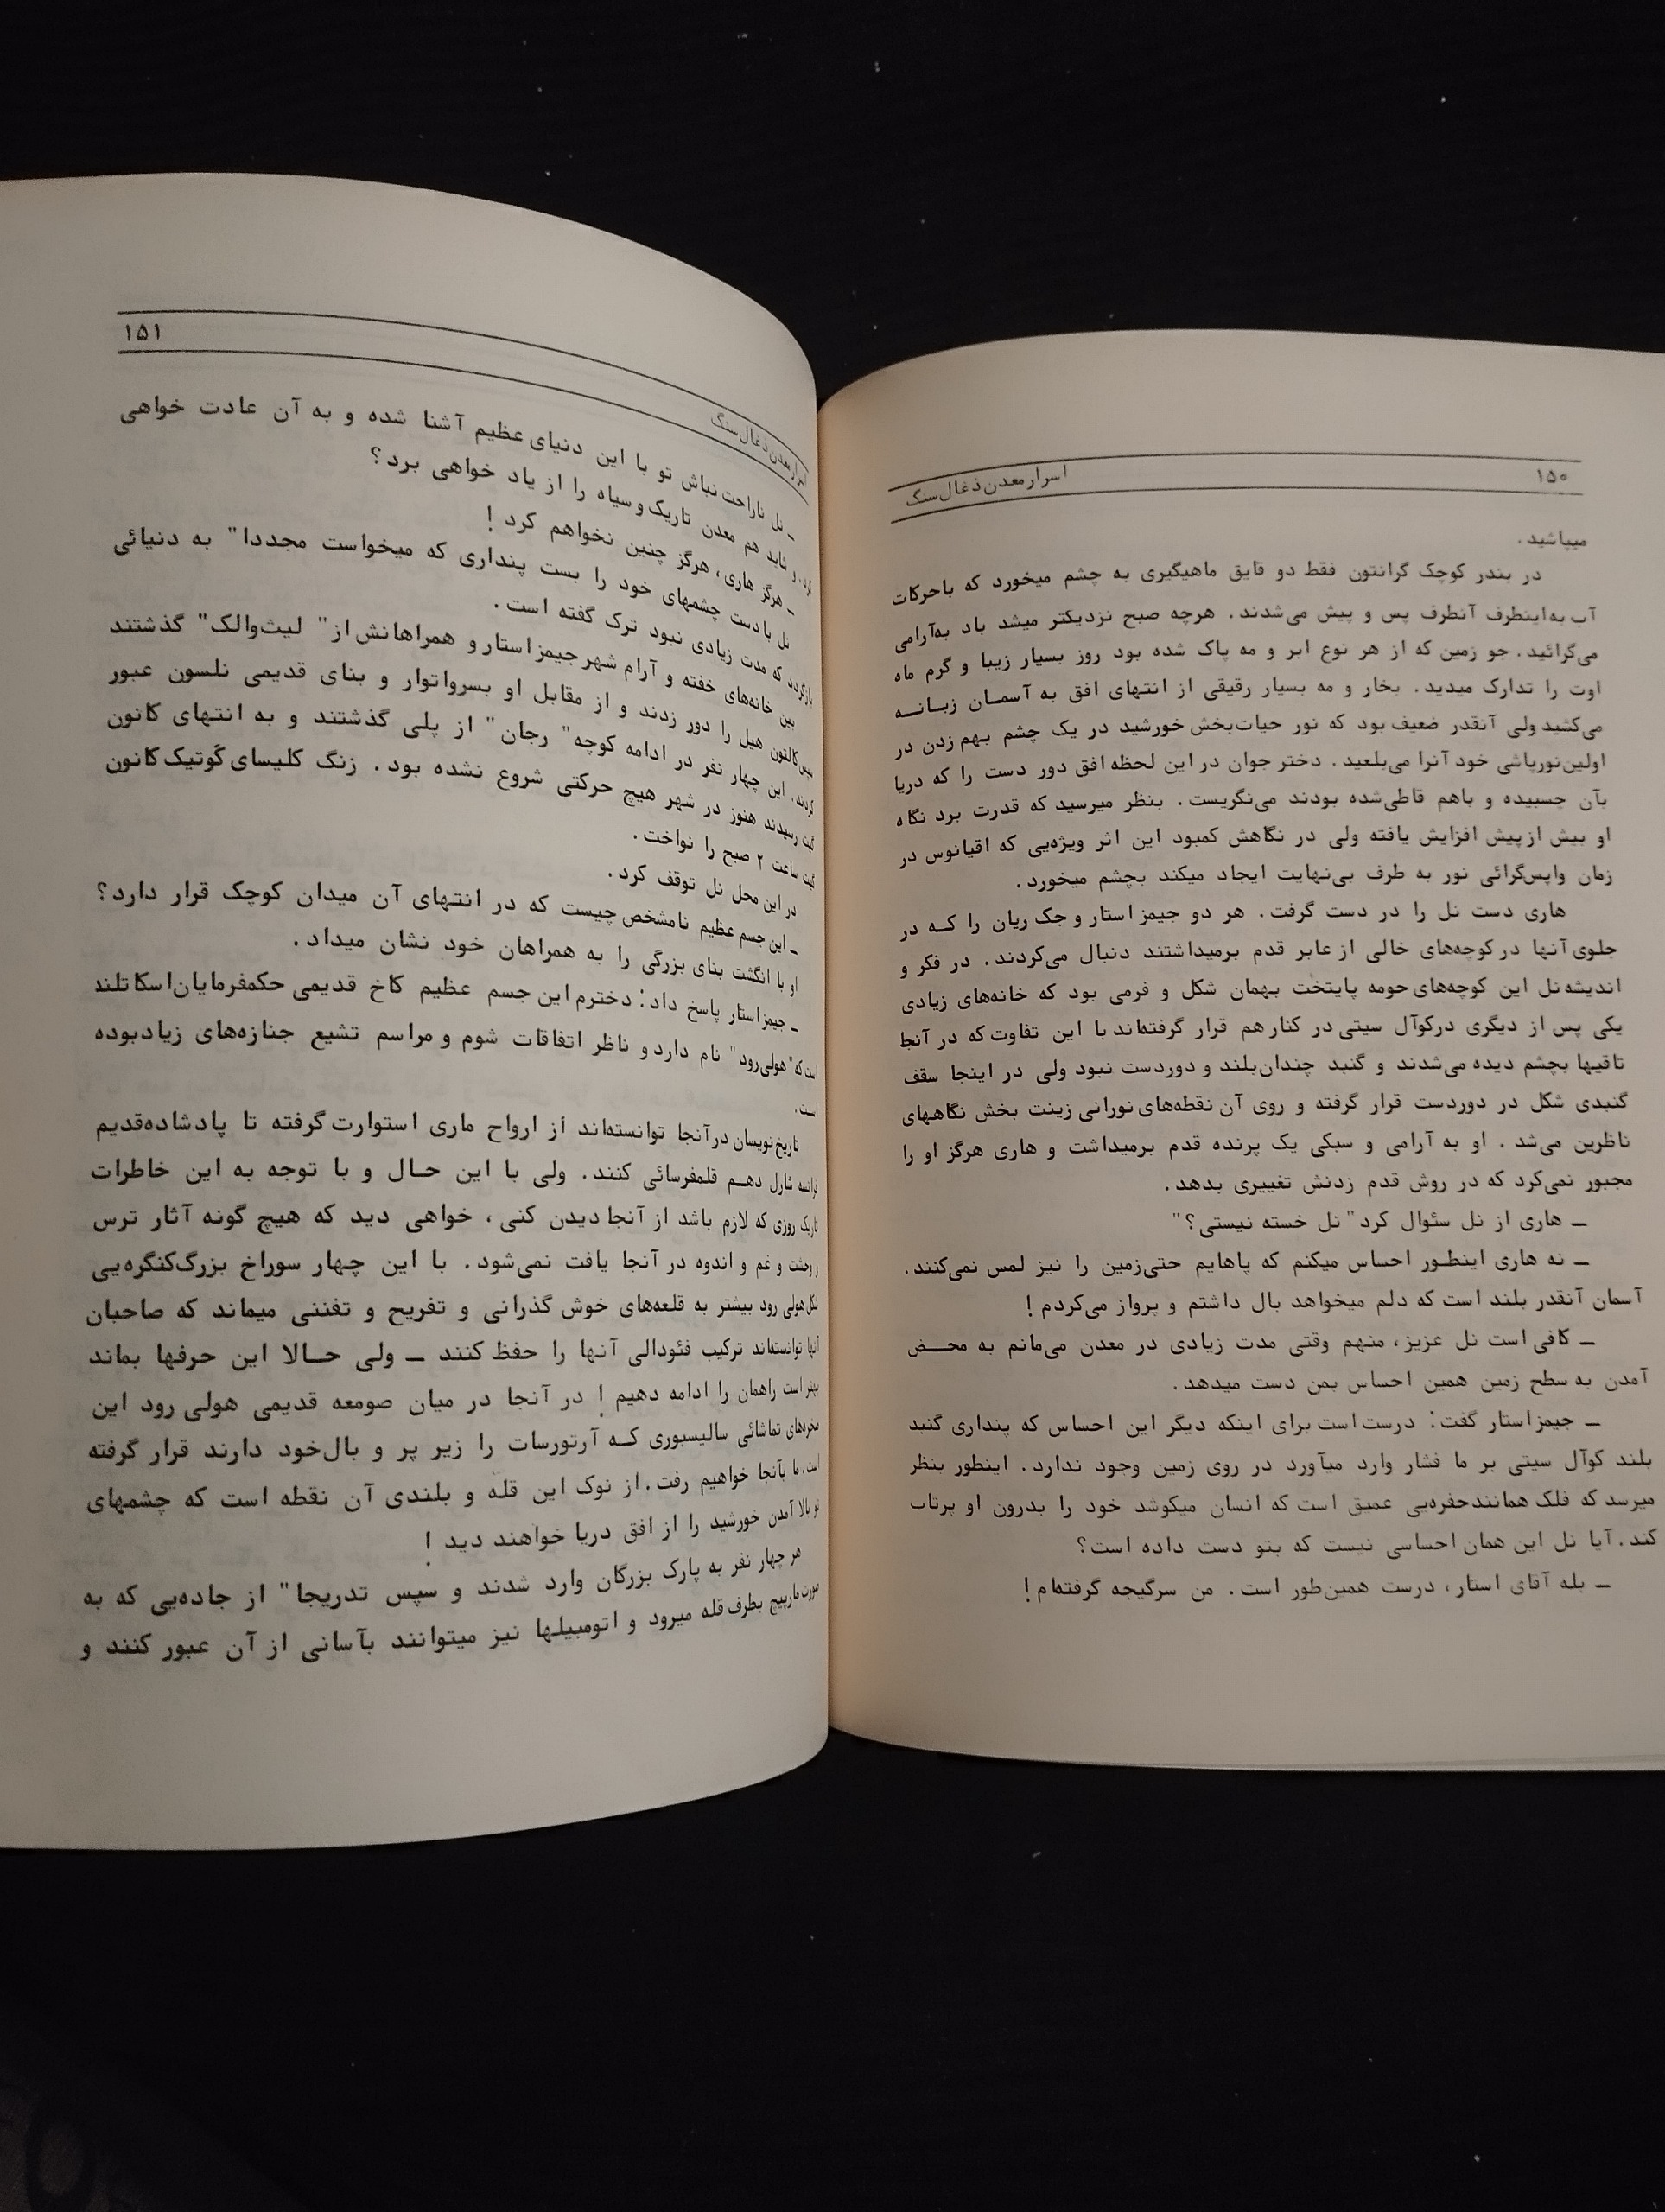 ۱۵۰ اسرار معدن ذغال‌سنگ
میباشید.
در بندر کوچک گرانتون فقط دو قایق ماهیگیری به چشم میخورد که باحرکات
آب به‌اینطرف آنطرف پس و پیش می‌شدند. هرچه صبح نزدیکتر میشد باد به‌آرامی
می‌گرائید. جو زمین که از هر نوع ابر و مه پاک شده بود روز بسیار زیبا و گرم ماه
اوت را تدارک میدید. بخار و مه بسیار رقیقی از انتهای افق به آسمـان زبـانــه
می‌کشید ولی آنقدر ضعیف بود که نور حیات‌بخش خورشید در یک چشم بهم زدن در
اولین‌نورپاشی خود آنرا می‌بلعید. دختر جوان در این لحظه افق دور دست را که دریا
بآن چسبیده و باهم قاطی‌شده بودند می‌نگریست. بنظر میرسید که قدرت برد نگاه
او بیش از پیش افزایش یافته ولی در نگاهش کمبود این اثر ویژه‌یی که اقیانوس در
زمان واپس‌گرائی نور به طرف بی‌نهایت ایجاد میکند بچشم میخورد.
هاری دست نل را در دست گرفت. هر دو جیمز استار و جک ریان را کــه در
جلوی آنها در کوچه‌های خالی از عابر قدم برمیداشتند دنبال می‌کردند. در فکر و
اندیشه نل این کوچه‌های حومه پایتخت بهمان شکل و فرمی بود که خانه‌های زیادی
یکی پس از دیگری درکوآل سیتی در کنار هم قرار گرفته‌اند با این تفاوت که در آنجا
تاقیها بچشم دیده می‌شدند و گنبد چندان‌بلند و دوردست نبود ولی در اینجا سقف
گنبدی شکل در دوردست قرار گرفته و روی آن نقطه‌های نورانی زینت بخش نگاههای
ناظرین می‌شد. او به آرامی و سبکی یک پرنده قدم برمیداشت و هاری هرگز او را
مجبور نمی‌کرد که در روش قدم زدنش تغییری بدهد.
ــ هاری از نل سئوال کرد "نل خسته نیستی؟"
ــ نه هاری اینطـور احساس میکنم که پاهایم حتی‌زمین را نیز لمس نمی‌کنند.
آسمان آنقدر بلند است که دلم میخواهد بال داشتم و پرواز می‌کردم!
ــ کافی است نل عزیز، منهم وقتی مدت زیادی در معدن می‌مانم به محــض
آمدن به سطح زمین همین احساس بمن دست میدهد.
ــ جیمز استار گفت: درست‌است برای اینکه دیگر این احساس که پنداری گنبد
بلند کوآل سیتی بر ما فشار وارد میآورد در روی زمین وجود ندارد. اینطور بنظر
میرسد که فلک همانندحفره‌یی عمیق است که انسان میکوشد خود را بدرون او پرتاب
کند. آیا نل این همان احساسی نیست که بتو دست داده است؟
ــ بله آقای استار، درست همین‌طور است. من سرگیجه گرفته‌ام!
اسرار معدن ذغال‌سنگ ۱۵۱
ــ نل ناراحت نباش تو با این دنیای عظیم آشنا شده و به آن عادت خواهی
کرد. و شاید هم معدن تاریک و سیاه را از یاد خواهی برد؟
ــ هرگز هاری، هرگز چنین نخواهم کرد!
نل با دست چشمهای خود را بست پنداری که میخواست مجددا" به دنیائی
بازگردد که مدت زیادی نبود ترک گفته است.
بین خانه‌های خفته و آرام شهر جیمز استار و همراهانش از "لیث‌والک" گذشتند
سپس کالتون هیل را دور زدند و از مقابل او بسرواتوار و بنای قدیمی نلسون عبور
کردند. این چهار نفر در ادامه کوچه "رجان" از پلی گذشتند و به انتهای کانون
گیت رسیدند هنوز در شهر هیچ حرکتی شروع نشده بود. زنگ کلیسای گوتیک کانون
گیت ساعت ۲ صبح را نواخت.
در این محل نل توقف کرد.
ــ این جسم عظیم نامشخص چیست که در انتهای آن میدان کوچک قرار دارد؟
او با انگشت بنای بزرگی را به همراهان خود نشان میداد.
ــ جیمز استار پاسخ داد: دخترم این جسم عظیم کاخ قدیمی حکمفرمایان‌اسکاتلند
است که "هولی‌رود" نام دارد و ناظر اتفاقات شوم و مراسم تشیع جنازه‌های زیادبوده
است.
تاریخ‌نویسان در آنجا توانسته‌اند از ارواح ماری استوارت گرفته تا پادشاه‌قدیم
فرانسه شارل دهــم قلمفرسائی کنند. ولی با این حـال و با توجه به این خاطرات
تاریک روزی که لازم باشد از آنجا دیدن کنی، خواهی دید که هیچ گونه آثار ترس
و وحشت و غم و اندوه در آنجا یافت نمی‌شود. با این چهار سوراخ بزرگ‌کنگره‌یی
شکل هولی رود بیشتر به قلعه‌های خوش گذرانی و تفریح و تفننی میماند که صاحبان
آنها توانسته‌اند ترکیب فئودالی آنها را حفظ کنند ــ ولی حــالا این حرفها بماند
بهتر است راهمان را ادامه دهیم! در آنجا در میان صومعه قدیمی هولی رود این
صخره‌های تماشائی سالیسبوری کــه آرتورسات را زیر پر و بال‌خود دارند قرار گرفته
است. ما بآنجا خواهیم رفت. از نوک این قله و بلندی آن نقطه است که چشمهای
تو بالا آمدن خورشید را از افق دریا خواهند دید!
هر چهار نفر به پارک بزرگان وارد شدند و سپس تدریجا" از جاده‌یی که به
صورت مارپیچ بطرف قله میرود و اتومبیلها نیز میتوانند بآسانی از آن عبور کنند و